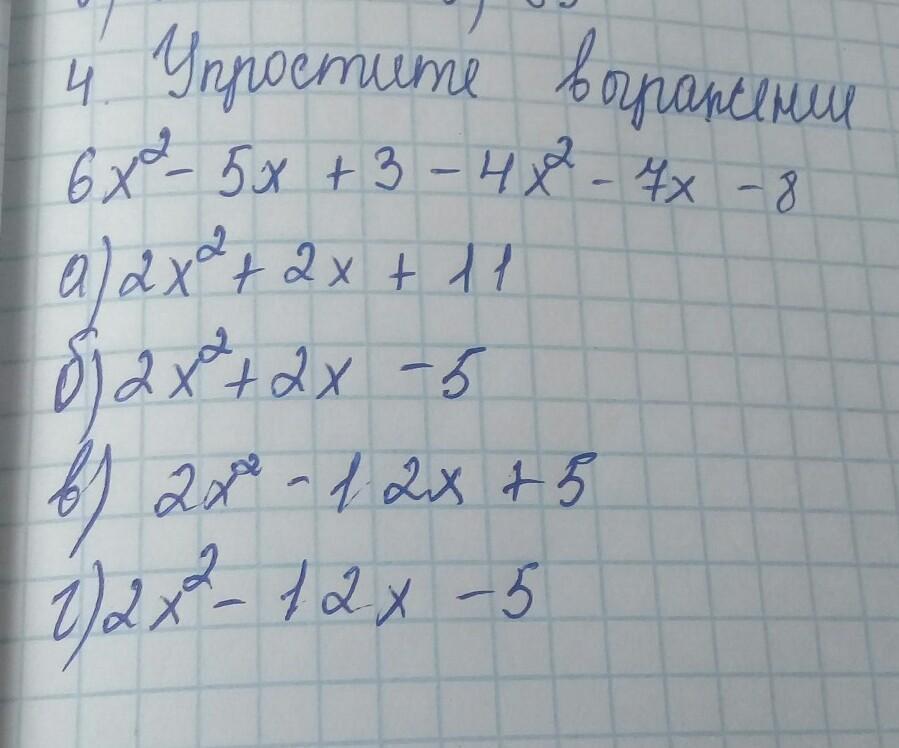 4. Упростите выражение
6x² - 5x + 3 - 4x² - 7x - 8
а) 2x² + 2x + 11
б) 2x² + 2x - 5
в) 2x² - 12x + 5
г) 2x² - 12x - 5